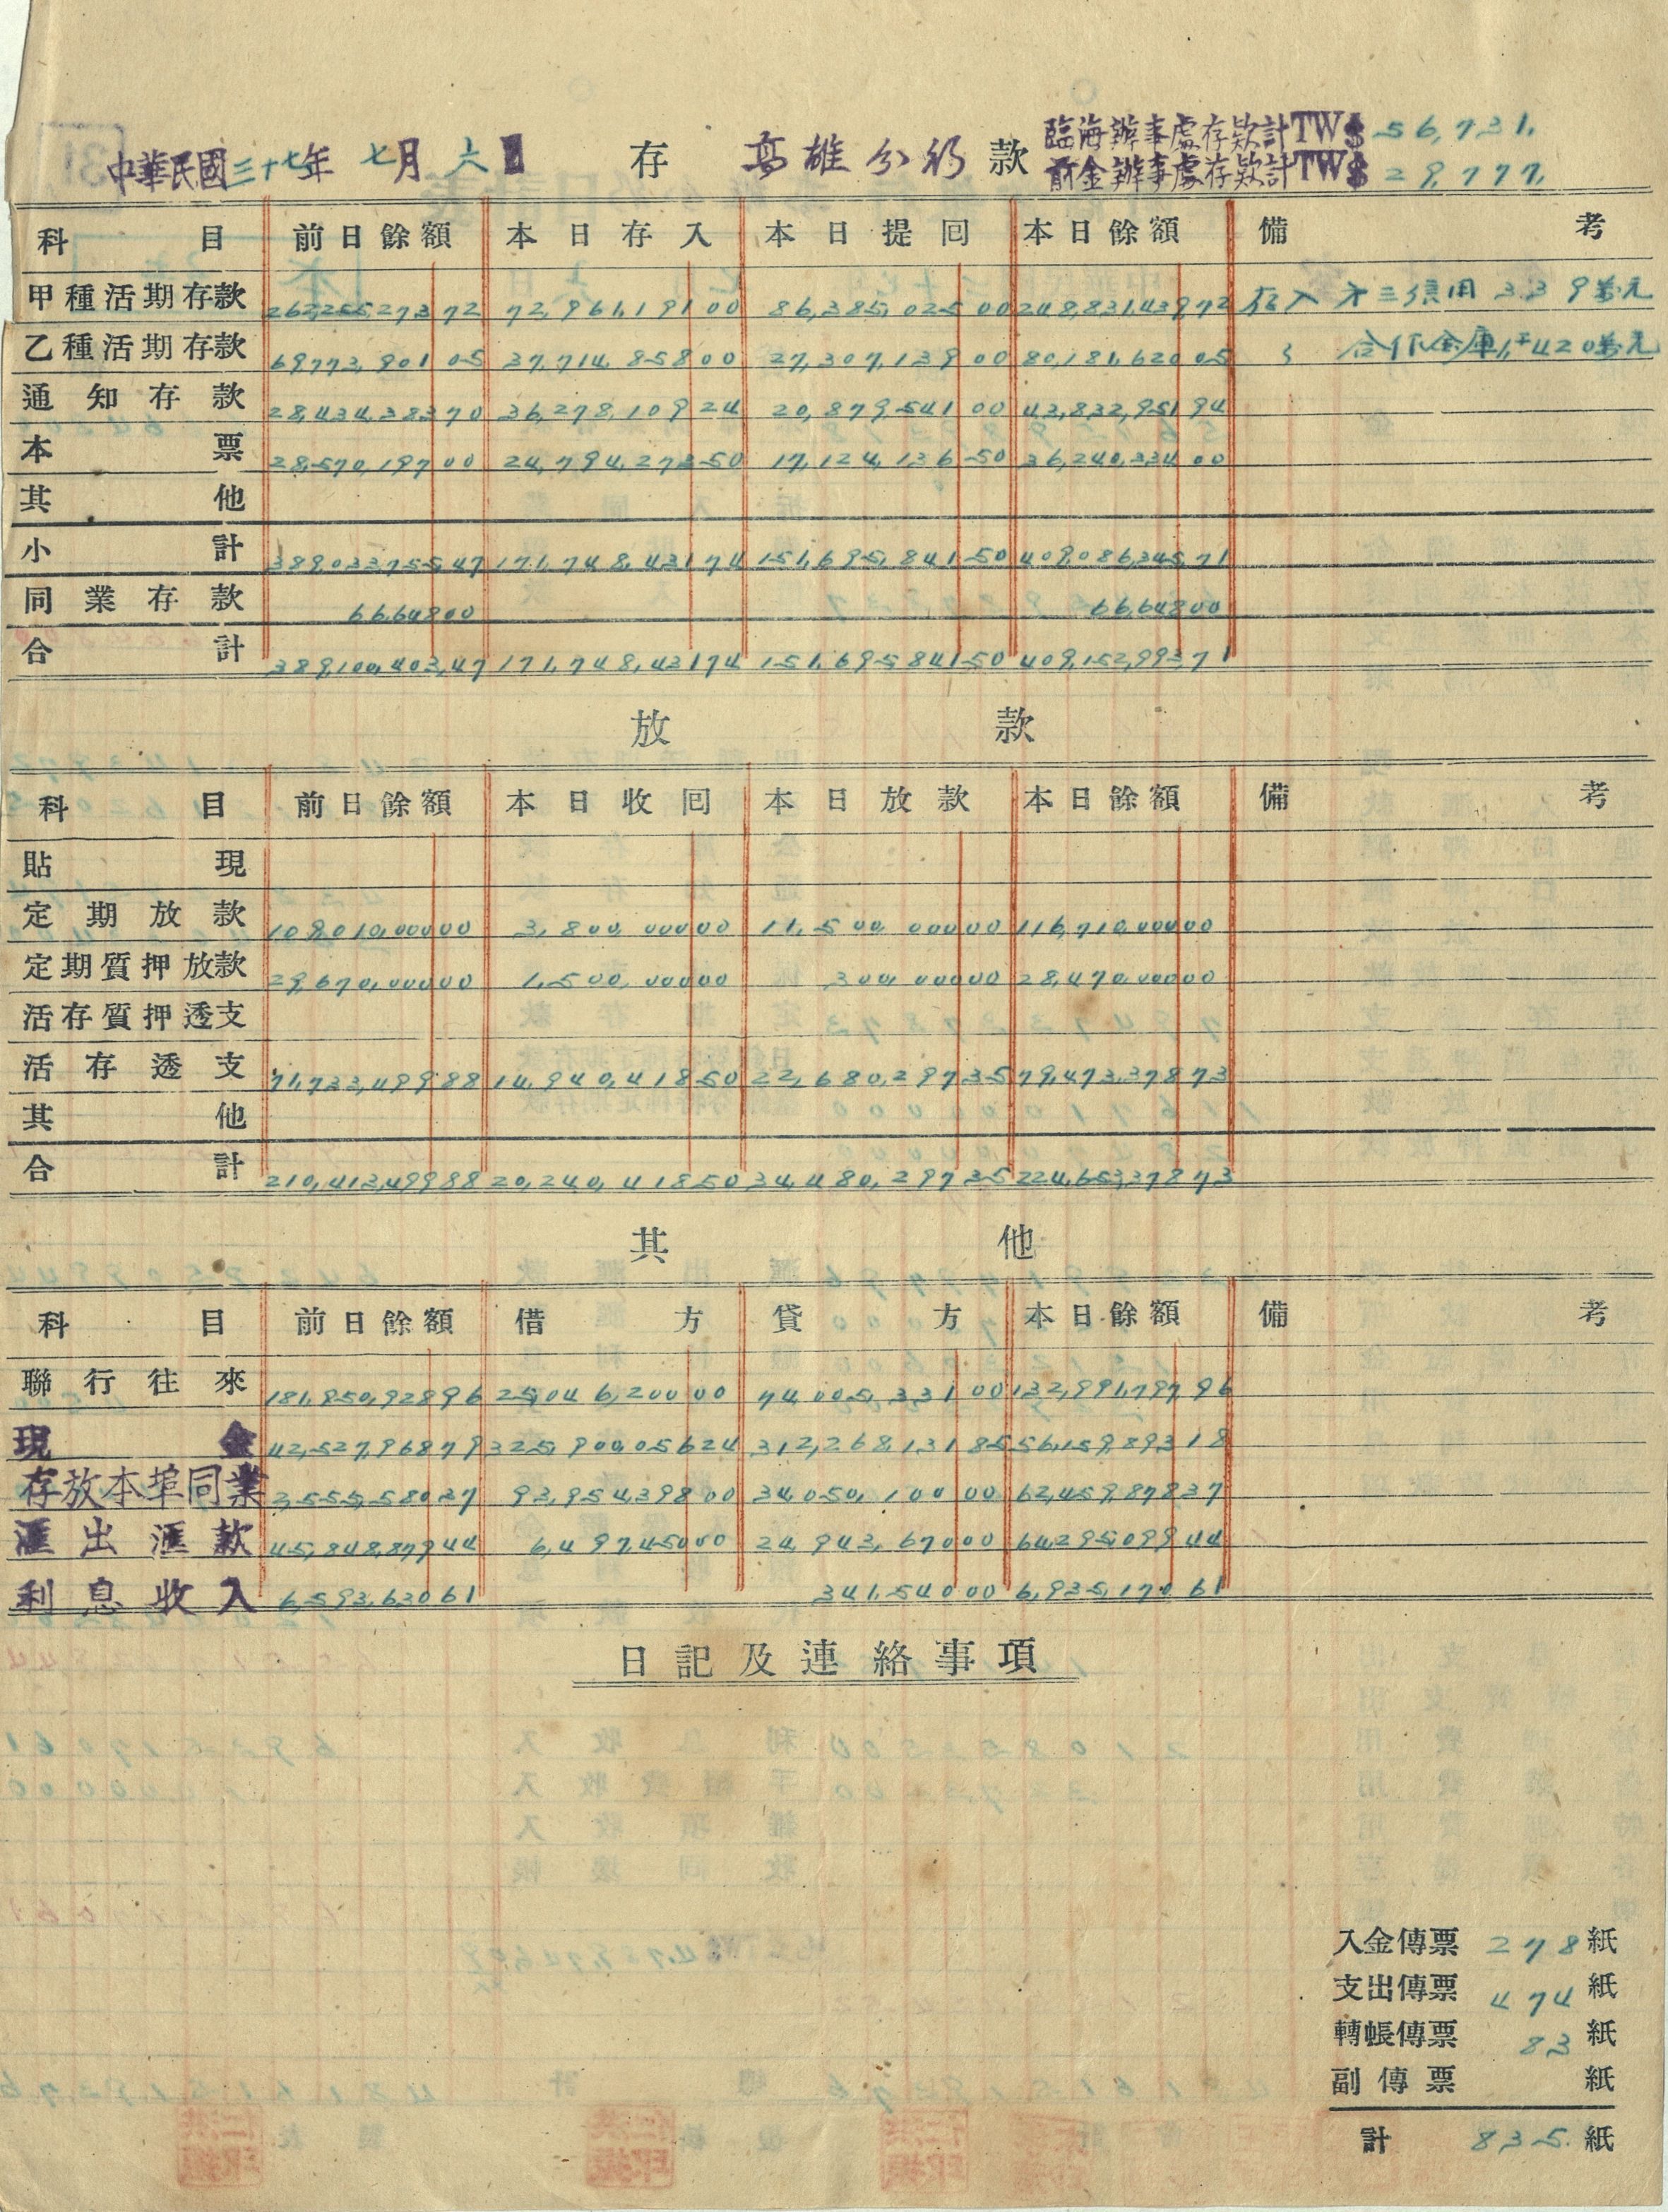 中華民國三十七年 七月 六日 存 高雄分行 款 臨海辦事處存款計TW$ 56,731.
前金辦事處存款計TW$ 29,777.
科目 前日餘額 本日存入 本日提回 本日餘額 備考
甲種活期存款 262,255,273 72 72,961,191 00 86,385,025 00 248,831,439 72 存入 才三信用 339萬元
乙種活期存款 69,773,901 05 37,714,858 00 27,307,139 00 80,181,620 05 〃 合作金庫1千420萬元
通知存款 28,434,383 70 36,278,109 24 20,879,541 00 43,832,951 94
本票 28,570,197 00 24,794,273 50 17,124,136 50 36,240,334 00
其他
小計 389,033,755 47 171,748,431 74 151,695,841 50 409,086,345 71
同業存款 66,648 00 66,648 00
合計 389,100,403 47 171,748,431 74 151,695,841 50 409,152,993 71
放款
科目 前日餘額 本日收回 本日放款 本日餘額 備考
貼現
定期放款 109,010,000 00 3,800,000 00 11,500,000 00 116,710,000 00
定期質押放款 29,670,000 00 1,500,000 00 300,000 00 28,470,000 00
活存質押透支
活存透支 71,733,499 88 14,940,418 50 22,680,297 35 79,473,378 73
其他
合計 210,413,499 88 20,240,418 50 34,480,297 35 224,653,378 73
其他
科目 前日餘額 借方 貸方 本日餘額 備考
聯行往來 181,950,928 96 25,046,200 00 74,005,331 00 132,991,797 96
現金 42,527,968 79 325,900,056 24 312,268,131 85 56,159,893 18
存放本埠同業 2,555,580 37 93,954,398 00 34,050,100 00 62,459,878 37
匯出滙款 45,848,879 44 6,497,450 00 24,943,670 00 64,295,099 44
利息收入 6,593,630 61 341,540 00 6,935,170 61
日記及連絡事項
入金傳票 278 紙
支出傳票 474 紙
轉帳傳票 83 紙
副傳票 紙
計 835 紙